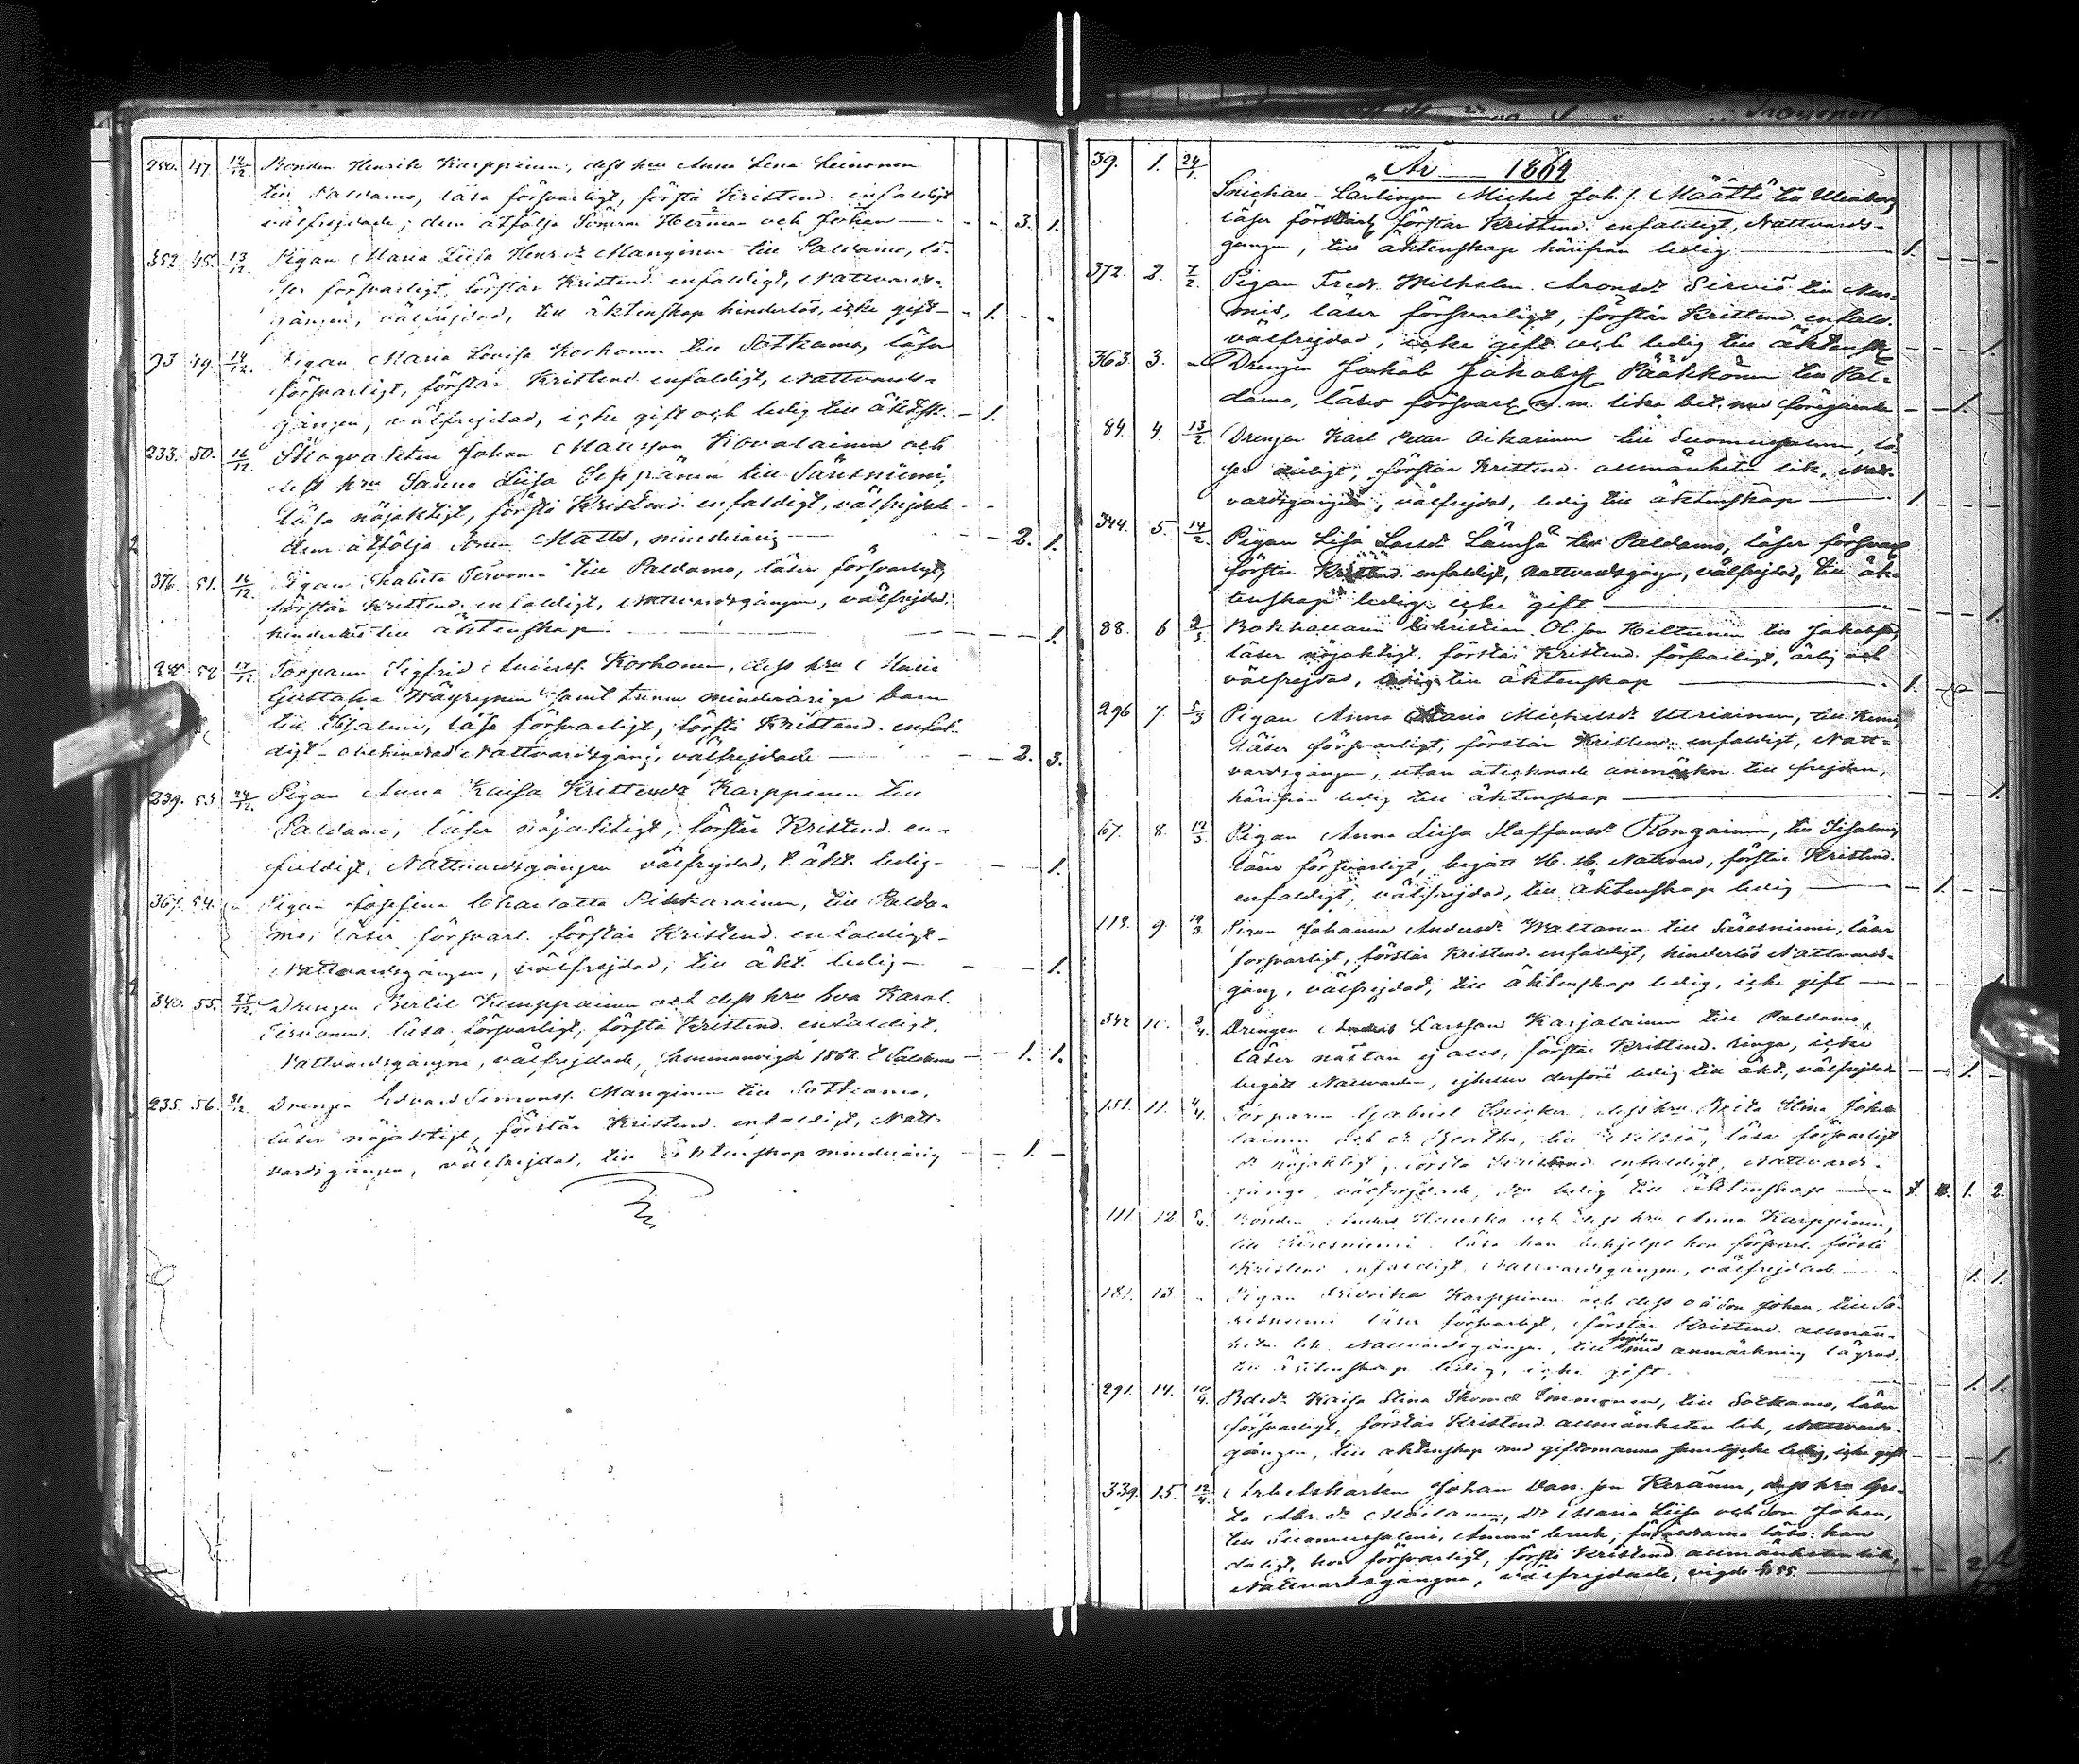 250. 47. 12/12. Bonden Henrik Karppinen, dess hru Anna Lena Leinonen
till Paldamo, läsa försvarligt, förstå Kristend. enfaldigt
välfrejdade; dem åtfölja Sönerna Herman och Johan — - - 3. 1.
352 48. 13/12. Pigan Maria Liisa Henr.dr Manginen till Paldamo, lä-
ser försvarligt, förstår Kristend. enfaldigt, Nattvards-
gången, välfrejdad, till äktenskap hinderlös, icke gift - 1. - -
93 49. 14/12. Pigan Maria Lovisa Korhonen till Sotkamo, läser
försvarligt, förstår Kristend. enfaldigt, Nattvards-
gången, välfrejdad, icke gift och ledig till äktensk. - 1.
233. 50. 16/12. Skogvakten Johan Matsson Kovalainen och
dess hru Sanna Liisa Seppänen till Säresniemi,
läsa nöjaktigt, förstå Kristend. enfaldigt, välfrejdade
dem åtfölja Sonen Matts, minderårig — - - 2. 1.
376. 51. 16/12. Pigan Tervonen till Paldamo, läser försvarligt,
förstår Kristend. enfaldigt, Nattvardsgången, välfrejdad,
hinderlös till äktenskap — - - - 1.
52 17/12. Torparen Sigfrid Anderss. Korhonen, dess hru Maria
Gustafva Wäyrynen samt trenne minderåriga barn
till Idjalmi, läsa försvarligt, förstå Kristend. enfal-
digt - obehindrad Nattvardsgång, välfrejdade — - - 2. 3.
239. 53. 24/12. Pigan Anna Kaisa Karppinen till
Paldamo, läser nöjaktigt, förstår Kristend. en-
faldigt, Nattvardsgången välfrejdad, t. äkt. ledig - — - 1.
367. 54. Pigan Josefina Charlotta Pikkarainen, till Palda-
mo, läser försvarl. förstår Kristend. enfaldigt -
Nattvardsgången, välfrejdad, till äkt. ledig — - - - 1.
340. 55. 27/12. Drengen Bertil Kemppainen och dess hru Eva Karol.
läsa försvarligt, förstå Kristend. enfaldigt,
Nattvardsgången, välfrejdade, sammanvigde 1862 i Paldamo - - 1. 1.
235. 56. 31/12 Drengen Edvard Simonss. Manginen till Sotkamo,
läser nöjaktigt, förstår Kristend. enfaldigt, Natt-
vardsgången, välfrejdad, till äktenskap minderårig - - 1. -
39. 1. 24/1. År 1864
Snickare-Lärlingen Michel Joh. s. Määttä till Uleåborg
läser försvarl. förstår Kristend. enfaldigt, Nattvards-
gången, till äktenskap härifrån ledig — 1. - - -
372. 2. 7/2. Pigan Fredr. Wilhelm. Aronsdr Sirviö till Nur-
mis, läser försvarligt, förstår Kristend. enfald.
välfrejdad, icke gift och ledig till äktensk. - - - 1.
363 3. Drengen Jakob Jakobss. Pääkkönen till Pal-
damo, läser försvarl. m. m. lika bet. med föregående - - 1. -
84. 4. 13/2. Drengen Karl Petter Oikarinen till Suomussalmi, lä-
ser dåligt, förstår Kristend. allmänheten lik, Natt-
vardsgången, välfrejdad, ledig till äktenskap — 1. - - -
344. 5. 14/2. Pigan Lisa Larsdr Lämsä till Paldamo, läser försvarl.
förstår Kristend. enfaldigt, Nattvardsgången, välfrejdad, till äk-
tenskap ledig, icke gift — - - - 1.
88. 6 Bokhållaren Christian Ol. son Hiltunen till
läser nöjaktigt, förstår Kristend. försvarligt, ärlig och
välfrejdad, ledig till äktenskap — 1. - - -
296 7. 5/3 Pigan Anna Maria Michelsdr Utriainen, till Kemi,
läser försvarligt, förstår Kristend. enfaldigt, Natt-
vardsgången, utan antecknade anmärkn. till frejden,
härifrån ledig till äktenskap — - - - 1.
67. 8. 12/3. Pigan Anna Liisa Staffansdr Rongainen, till Idjalmi
läser försvarligt, begått H. H. Nattvard, förstår Kristend.
enfaldigt, välfrejdad, till äktenskap ledig — - 1. - -
113. 9. 19/3. Pigan Johanna Andersdr Waltanen till Säresniemi, läser
försvarligt, förstår Kristend. enfaldigt, hinderlös Nattvards-
gång, välfrejdad, till äktenskap ledig, icke gift — - - - 1.
342 10. 3/4. Drengen Larsson Karjalainen till Paldamo,
läser nästan ej alls, förstår Kristend. ringa, icke
begått Nattvarden, ej heller derföre ledig till äkt., välfrejdad - - 1. -
151. 11. 4/4. Torparen Gabriel Snicker, dess hru Brita Stina
och dr Beatha, till läsa försvarligt
o. nöjaktigt, förstå Kristend. enfaldigt, Nattvards-
gång, välfrejdade, dr ledig till äktenskap — 1. 2.
111. 12 Bonden och dess hru Anna Karppinen,
till Säresniemi. läsa han hon försvarl. förstå
Kristend. enfaldigt, Nattvardsgången, välfrejdade — 1. 1.
181. 13. Pigan Fredrika Karppinen och dess o ä son Johan, till Sä-
resniemi läser försvarligt, förstår Kristend. allmän-
heten lik. Nattvardsgången, till frejden med anmärkning lägrad,
till äktenskap ledig, icke gift. 1. 1.
291. 14. 10/4. Bdedr Kaisa Stina Thomdr Immonen, till Sotkamo, läser
försvarligt, förstår Kristend. allmänheten lik, Nattvards-
gången, till äktenskap med giftomanna samtycke ledig, icke gift - - - 1.
339. 15. 12/4. Arbetskarlen Johan Dan. son Keränen, dess hru Gre-
ta Abr. dr Moilanen, Dr Maria Liisa och son Johan,
till Suomussalmi, Ämmä bruk; föräldrarna läsa: han
dåligt, hon försvarligt, förstå Kristend. allmänheten lik,
Nattvardsgången, välfrejdade, vigde 55. — - - 2. 2.